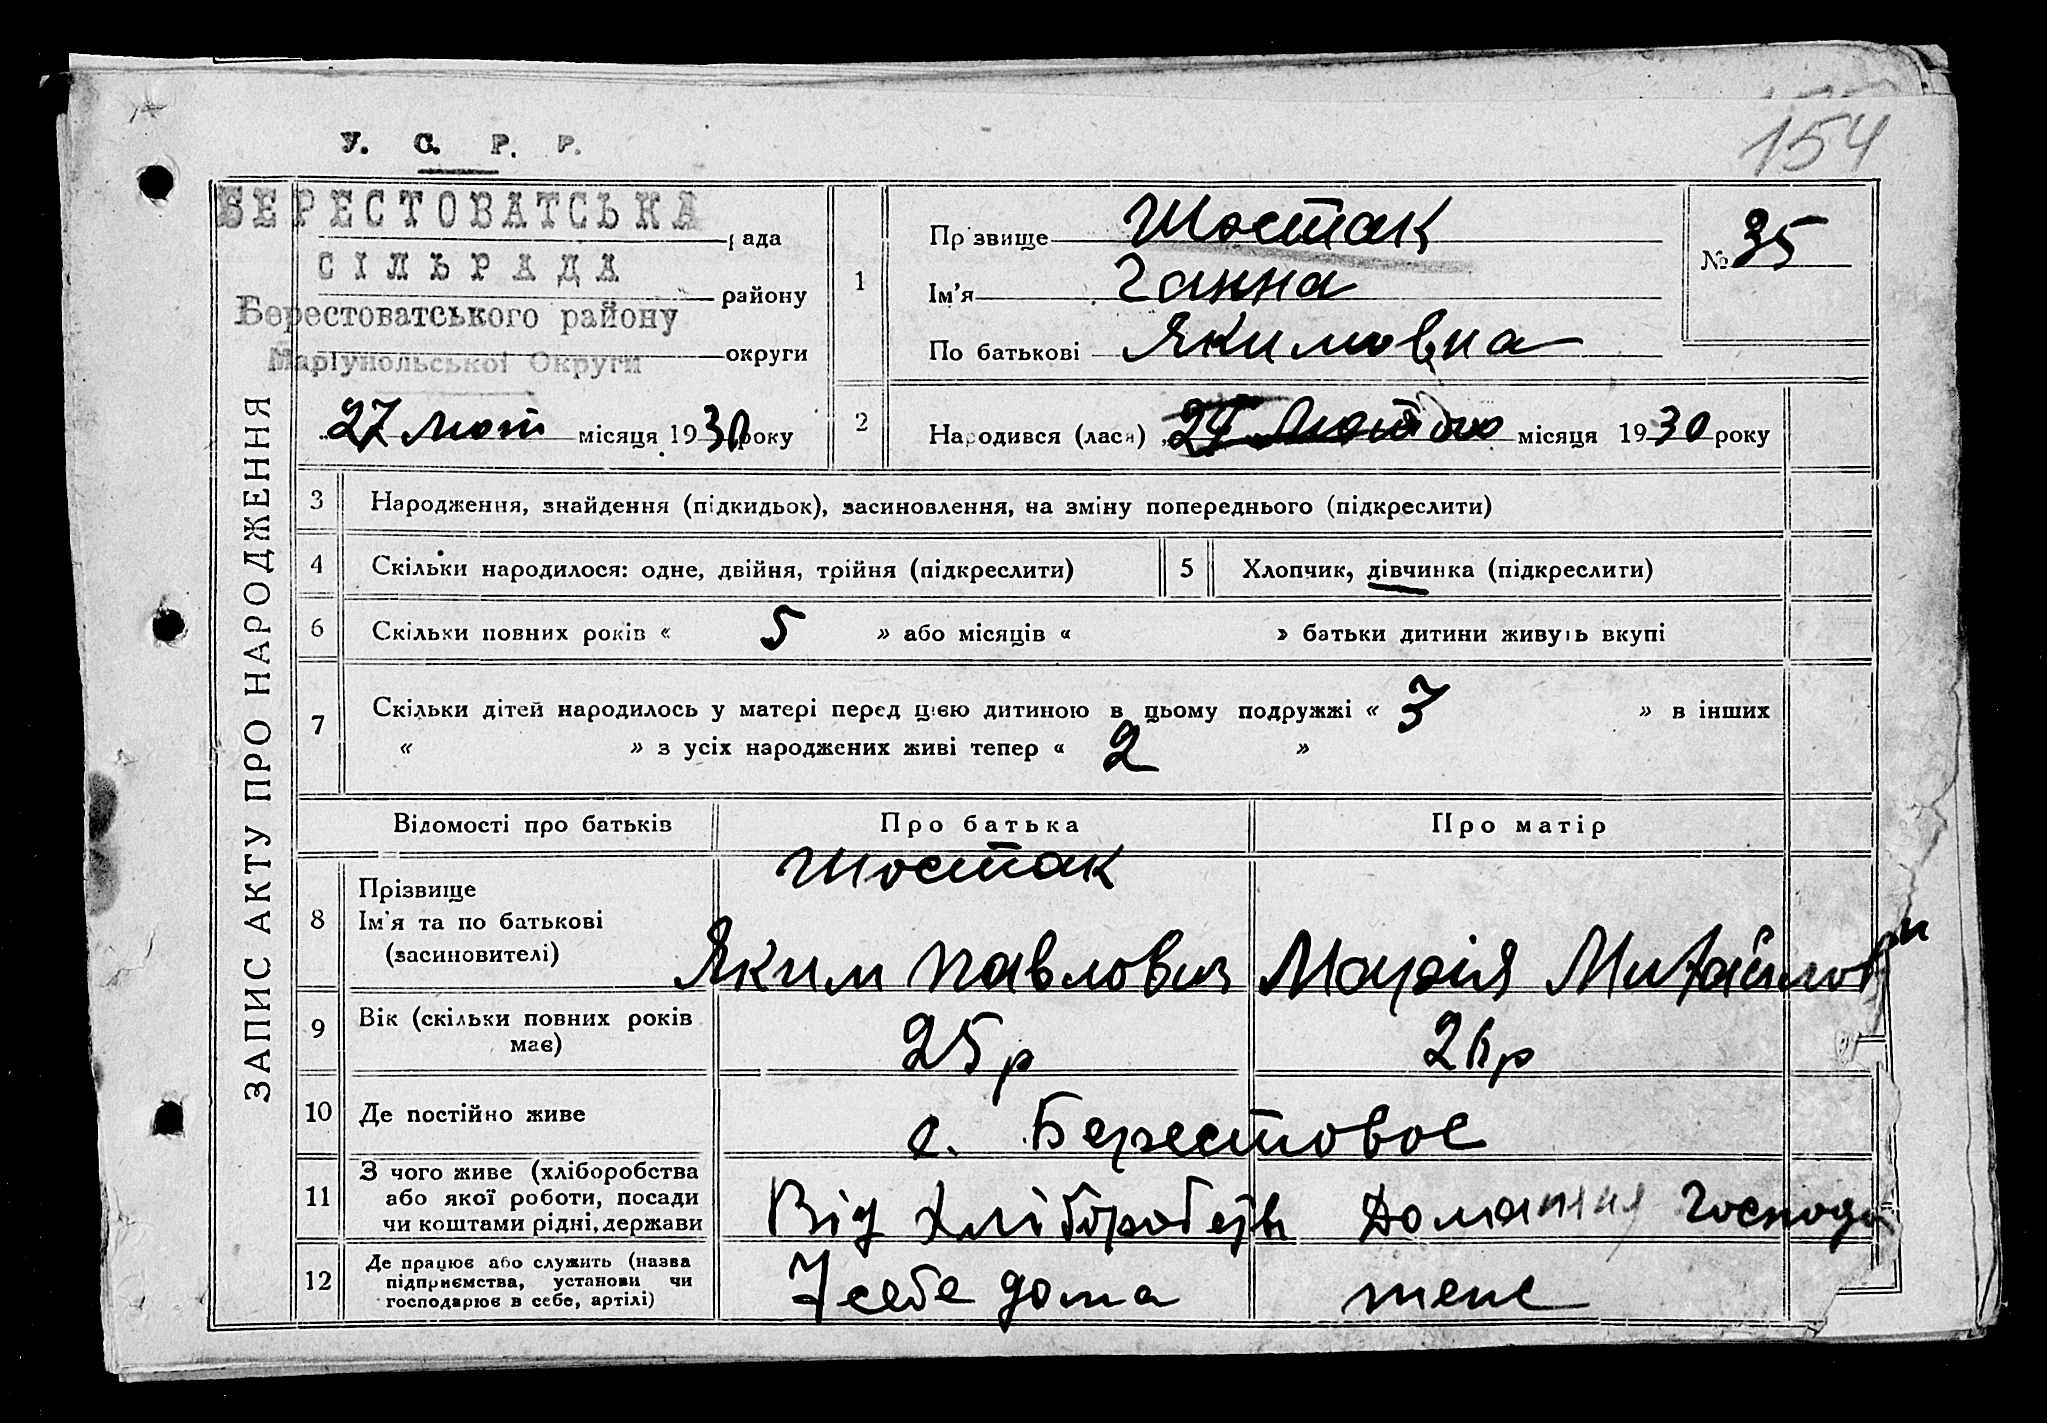 154
У. С. Р. Р.
БЕРЕСТОВАТСЬКА
рада
СІЛЬРАДА
району
Берестоватського району
округи
Маріупольської Округи
27 лют місяця 1930 року
ЗАПИС АКТУ ПРО НАРОДЖЕННЯ
1
Прізвище Шостак
Ім'я Ганна
По батькові Якимовна
№ 35
2
Народився (лася) „24 місяця 1930 року
3 Народження, знайдення (підкидьок), засиновлення, на зміну попереднього (підкреслити)
4 Скільки народилося: одне, двійня, трійня (підкреслити)
5 Хлопчик, дівчинка (підкреслити)
6 Скільки повних років « 5 » або місяців « » батьки дитини живуть вкупі
7 Скільки дітей народилось у матері перед цією дитиною в цьому подружжі « 3 » в інших
« » з усіх народжених живі тепер « 2 »
Відомості про батьків
Про батька
Про матір
8 Прізвище
Ім'я та по батькові
(засиновителі)
Шостак
Яким Павлович
Марія Михайловн
9 Вік (скільки повних років
має)
25 р
26 р
10 Де постійно живе
с. Берестовое
11 З чого живе (хліборобства
або якої роботи, посади
чи коштами рідні, держави
Від хліборобств
Домашня господа
12 Де працює або служить (назва
підприємства, установи чи
господарює в себе, артілі)
У себе дома
тепе